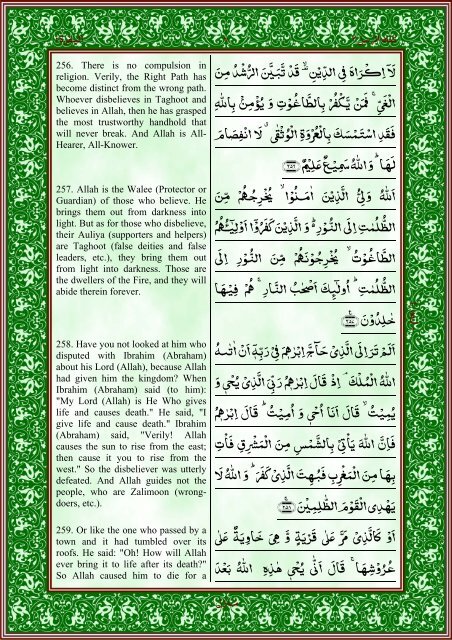 256. There is no compulsion in
religion. Verily, the Right Path has
become distinct from the wrong path.
Whoever disbelieves in Taghoot and
believes in Allah, then he has grasped
the most trustworthy handhold that
will never break. And Allah is All-
Hearer, All-Knower.
لَآ اِكْرَاهَ فِي الدِّيْنِ ۙ قَدْ تَّبَيَّنَ الرُّشْدُ مِنَ
الْغَيِّ ۚ فَمَنْ يَّكْفُرْ بِالطَّاغُوْتِ وَ يُؤْمِنْۢ بِاللّٰهِ
فَقَدِ اسْتَمْسَكَ بِالْعُرْوَةِ الْوُثْقٰى ۗ لَا انْفِصَامَ
لَهَا ؕ وَ اللّٰهُ سَمِيْعٌ عَلِيْمٌ ﴿۲۵۶﴾
257. Allah is the Walee (Protector or
Guardian) of those who believe. He
brings them out from darkness into
light. But as for those who disbelieve,
their Auliya (supporters and helpers)
are Taghoot (false deities and false
leaders, etc.), they bring them out
from light into darkness. Those are
the dwellers of the Fire, and they will
abide therein forever.
اَللّٰهُ وَلِيُّ الَّذِيْنَ اٰمَنُوْا ۙ يُخْرِجُهُمْ مِّنَ
الظُّلُمٰتِ اِلَى النُّوْرِ ؕ وَ الَّذِيْنَ كَفَرُوْۤا اَوْلِيٰٓـُٔهُمُ
الطَّاغُوْتُ ۙ يُخْرِجُوْنَهُمْ مِّنَ النُّوْرِ اِلَى
الظُّلُمٰتِ ؕ اُولٰٓئِكَ اَصْحٰبُ النَّارِ ۚ هُمْ فِيْهَا
خٰلِدُوْنَ ﴿۲۵۷﴾
258. Have you not looked at him who
disputed with Ibrahim (Abraham)
about his Lord (Allah), because Allah
had given him the kingdom? When
Ibrahim (Abraham) said (to him):
"My Lord (Allah) is He Who gives
life and causes death." He said, "I
give life and cause death." Ibrahim
(Abraham) said, "Verily! Allah
causes the sun to rise from the east;
then cause it you to rise from the
west." So the disbeliever was utterly
defeated. And Allah guides not the
people, who are Zalimoon (wrong-
doers, etc.).
اَلَمْ تَرَ اِلَى الَّذِيْ حَآجَّ اِبْرٰهٖمَ فِيْ رَبِّهٖۤ اَنْ اٰتٰىهُ
اللّٰهُ الْمُلْكَ ۘ اِذْ قَالَ اِبْرٰهٖمُ رَبِّيَ الَّذِيْ يُحْيٖ وَ
يُمِيْتُ ۙ قَالَ اَنَا اُحْيٖ وَ اُمِيْتُ ؕ قَالَ اِبْرٰهٖمُ
فَاِنَّ اللّٰهَ يَاْتِيْ بِالشَّمْسِ مِنَ الْمَشْرِقِ فَاْتِ
بِهَا مِنَ الْمَغْرِبِ فَبُهِتَ الَّذِيْ كَفَرَ ؕ وَ اللّٰهُ لَا
يَهْدِي الْقَوْمَ الظّٰلِمِيْنَ ﴿۲۵۸﴾
259. Or like the one who passed by a
town and it had tumbled over its
roofs. He said: "Oh! How will Allah
ever bring it to life after its death?"
So Allah caused him to die for a
اَوْ كَالَّذِيْ مَرَّ عَلٰى قَرْيَةٍ وَّ هِيَ خَاوِيَةٌ عَلٰى
عُرُوْشِهَا ۚ قَالَ اَنّٰى يُحْيٖ هٰذِهِ اللّٰهُ بَعْدَ